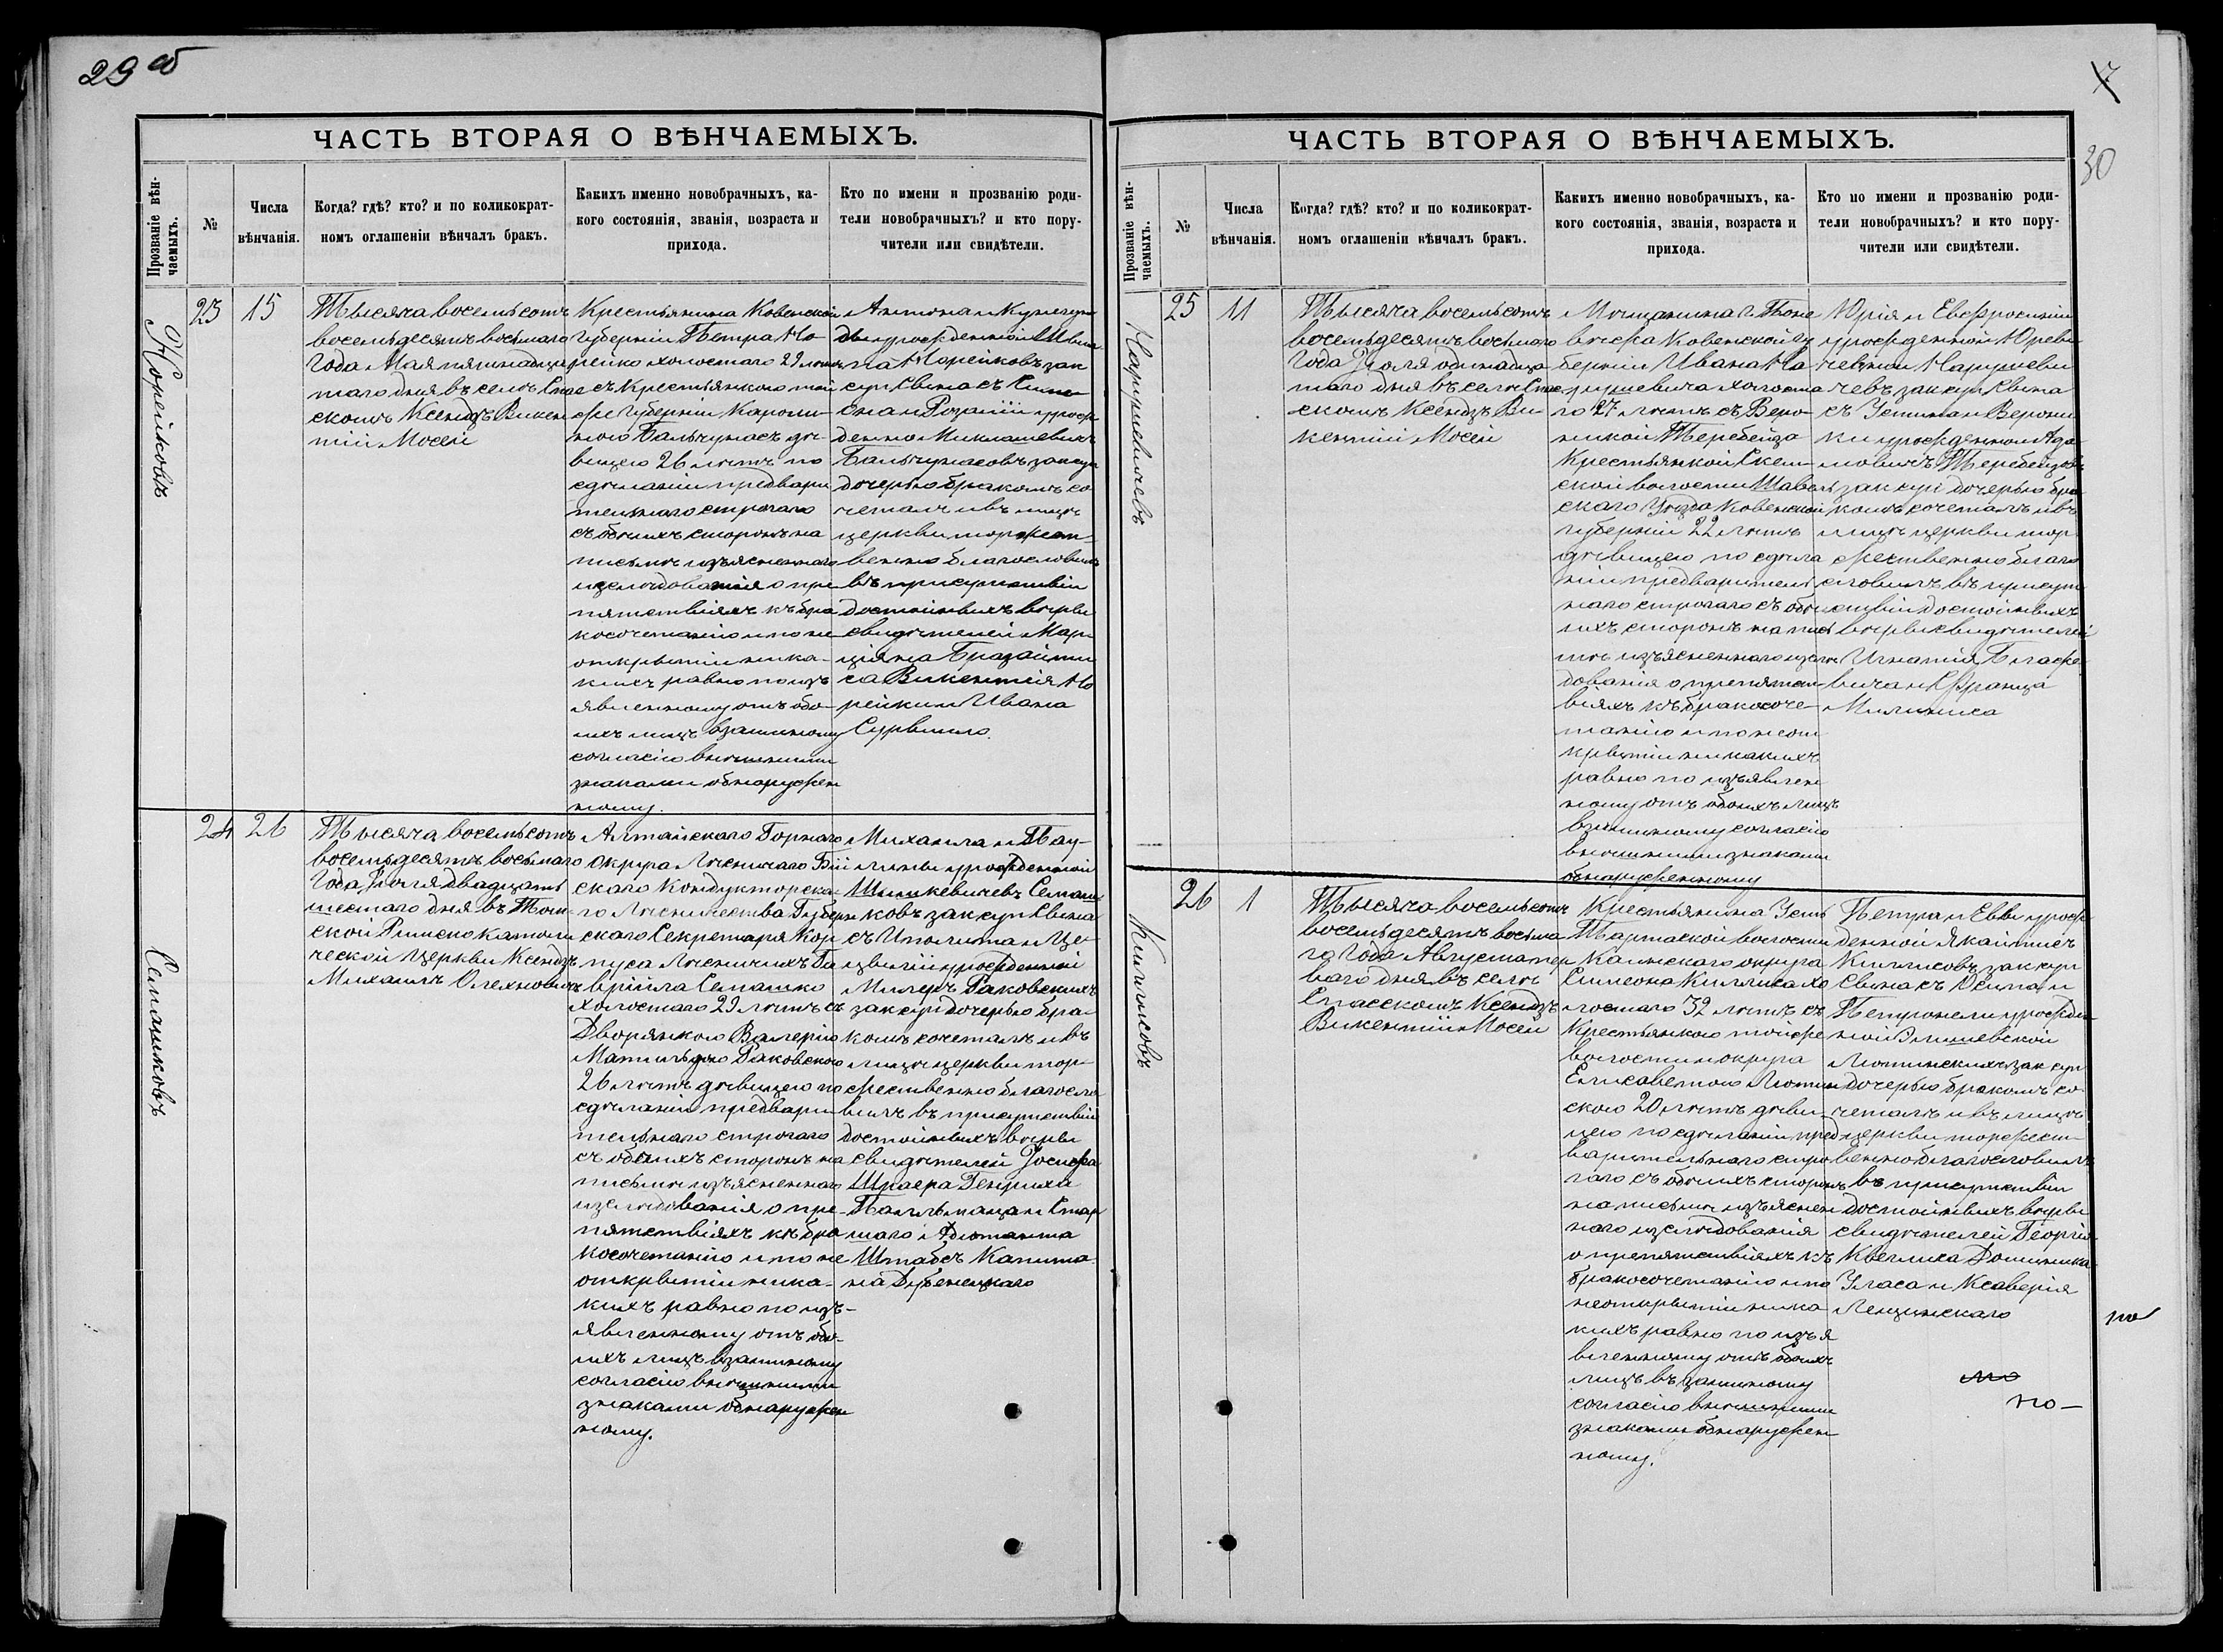 29 об
ЧАСТЬ ВТОРАЯ О ВѢНЧАЕМЫХЪ.
Прозваніе вѣн-
чаемыхъ.
№
Числа
вѣнчанія.
Когда? гдѣ? кто? и по коликократ-
номъ оглашеніи вѣнчалъ бракъ.
Какихъ именно новобрачныхъ, ка-
кого состоянія, званія, возраста и
прихода.
Кто по имени и прозванію роди-
тели новобрачныхъ? и кто пору-
чители или свидѣтели.
Норейковъ
23
15
Тысяча восемьсотъ
восемьдесятъ восьмаго
Года Мая пятнадца
таго дня въ селѣ Спас
скомъ Ксендзъ Викен
тій Мосей
Крестьянина Ковенской
Губерніи Петра Но
рейко холостаго 29 лѣтъ
съ Крестьянкою той
же Губерніи Кароли-
ною Бальчунасъ дѣ-
вицею 26 лѣтъ по
сдѣланіи предвари
тельнаго строгаго
съ обоихъ сторонъ на
письмѣ изъясненнаго
изслѣдованія о пре
пятствіяхъ къ бра
косочетанію и по не
открытіи ника-
кихъ равно по изъ
явленному отъ обо-
ихъ лицъ взаимному
согласію внѣшними
знаками обнаружен
ному.
Антона и Кунегун
ды урожденной
Норейковъ зак
суп. сына съ
и Розаліи урож
денно Миклашевичъ
Бальчунасовъ зак суп
дочерью бракомъ со
четалъ и въ лицѣ
церкви торжест-
венно благословилъ
въ присутствіи
достойныхъ вѣры
свидѣтелей Мар-
ціяна Бразайти
са Викентія Но
рейки и Ивана
Сурвилло.
Семашковъ
24
26
Тысяча восемьсотъ
восемьдесятъ восьмаго
Года Іюля двадцать
шестаго дня въ Том-
ской Римско католи
ческой Церкви Ксендзъ
Михаилъ Олехновичъ
Алтайскаго Горнаго
Округа Лѣсничаго Бій
скаго Кондукторска-
го Лѣсничества Губерн
скаго Секретаря Кор
пуса Лѣсничихъ Га
вріила Семашко
холостаго 29 лѣтъ съ
Дворянкою Валеріею
Матильдою Раковскою
26 лѣтъ дѣвицею по
сдѣланіи предвари
тельнаго строгаго
съ обоихъ сторонъ на
письмѣ изъясненнаго
изслѣдованія о пре-
пятствіяхъ къ бра
косочетанію и по не
открытіи ника-
кихъ равно по изъ-
явленному отъ обо-
ихъ лицъ взаимному
согласію внѣшними
знаками обнаружен
ному.
Михаила и Пау-
лины урожденной
Шишкевичевъ Семаш
ковъ зак суп сына
съ Иполита и Це-
циліи урожденной
Милеръ Раковскихъ
зак суп дочерью бра-
комъ сочеталъ и въ
лицѣ церкви тор-
жественно благосло
вилъ въ присутствіи
достойныхъ вѣры
свидѣтелей Іосифа
Шраера Генриха
и Стар
шаго Адютанта
Штабсъ Капита
на Дубенецкаго
7
30
ЧАСТЬ ВТОРАЯ О ВѢНЧАЕМЫХЪ.
Прозваніе вѣн-
чаемыхъ.
№
Числа
вѣнчанія.
Когда? гдѣ? кто? и по коликократ-
номъ оглашеніи вѣнчалъ бракъ.
Какихъ именно новобрачныхъ, ка-
кого состоянія, званія, возраста и
прихода.
Кто по имени и прозванію роди-
тели новобрачныхъ? и кто пору-
чители или свидѣтели.
Нарушевичевъ
25
11
Тысяча восемьсотъ
восемьдесятъ восьмаго
Года Іюля одинадца
таго дня въ селѣ Спас
скомъ Ксендзъ Ви
кентій Мосей
Мѣщанина г. Поне
вѣжа Ковенской гу
берніи Ивана На
рушевича холоста
го 27 лѣтъ съ Веро-
никой Теребейза
Крестьянкой Скем-
ской волости Шавель
скаго Уѣзда Ковенской
губерніи 22 лѣтъ
дѣвицею по сдѣла
ніи предваритель
наго строгаго съ обо
ихъ сторонъ на пись
мѣ изъясненнаго изслѣ
дованія о препятст
віяхъ къ бракосоче-
танію и по неот
крытіи никакихъ
равно по изъявлен
ному отъ обоихъ лицъ
взаимному согласію
внѣшними знаками
обнаруженному
Юрія и Евфросиніи
урожденной Юреви
чевной Нарушеви
чевъ зак суп сына
съ Устина и Верони
ки урожденной Ада-
мовичъ Теребейзов
зак суп дочерью бра
комъ сочеталъ и въ
лицѣ церкви тор
жественно благо
словилъ въ присут
ствіи достойныхъ
вѣры свидѣтелей
Игнатія Блаже
вича и Франца
Милиниса
Киллисовъ
26
1
Тысяча восемьсотъ
восемьдесятъ восьма
го Года Августа пер
ваго дня въ селѣ
Спасскомъ Ксендзъ
Викентій Мосей
Крестьянина Усть
Тартаской волости
Каинскаго округа
Симеона Киллиса хо
лостаго 32 лѣтъ съ
Крестьянкою той же
волости и округа
Елисаветою Лютин
скою 20 лѣтъ дѣви-
цею по сдѣланіи пред
варительнаго стро
гаго съ обоихъ сторонъ
на письмѣ изъяснен
наго изслѣдованія
о препятствіяхъ къ
бракосочетанію и по
неоткрытіи ника
кихъ равно по изъя
вленному отъ обоихъ
лицъ взаимному
согласію внѣшними
знаками обнаружен
ному.
Петра и Еввы урож
денной Якайтисъ
Киллисовъ зак суп
сына съ Осипа и
Петронели урожден
ной
Лютинскихъ зак суп
дочерью бракомъ со-
четалъ и въ лицѣ
церкви торжест-
венно благословилъ
въ присутствіи
достойныхъ вѣры
свидѣтелей Георгія
Квелиса Доминика
Уласа и Ксаверія
Лещинскаго
по
по
по-